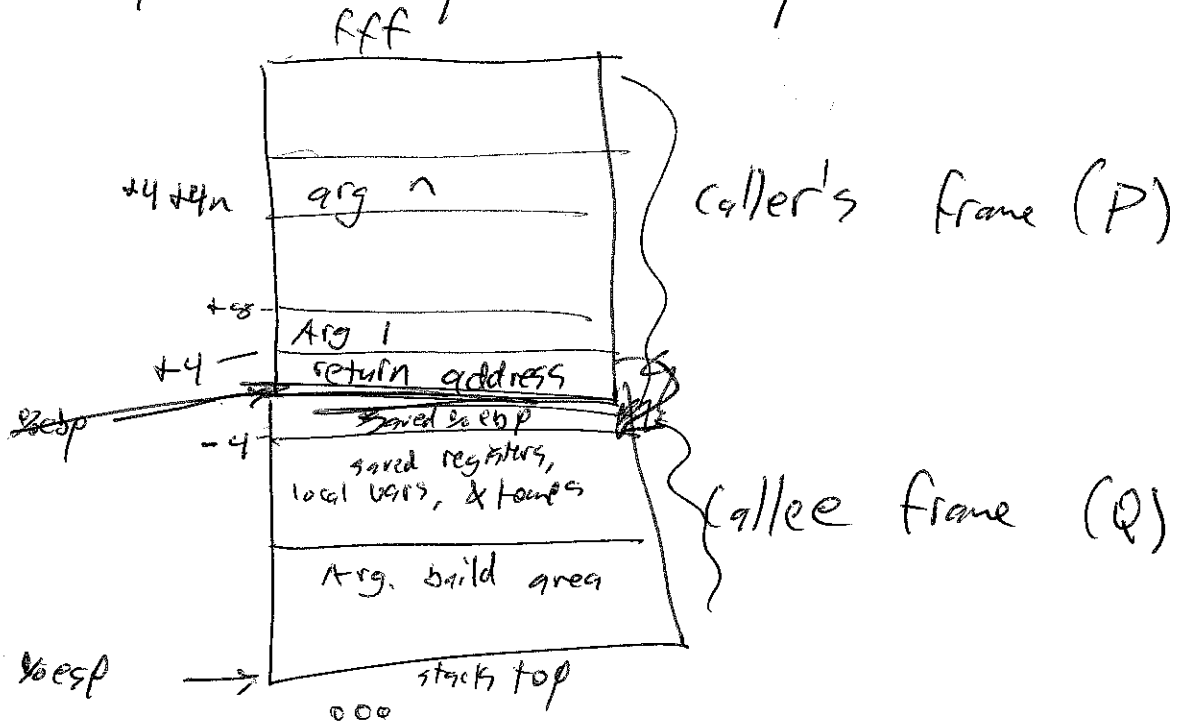 fff
+4+4n arg n
Caller's frame (P)
+8
Arg 1
+4
return address
%ebp
saved %ebp
-4
saved registers,
local vars, & temps
Callee frame (Q)
Arg. build area
%esp
stack top
000